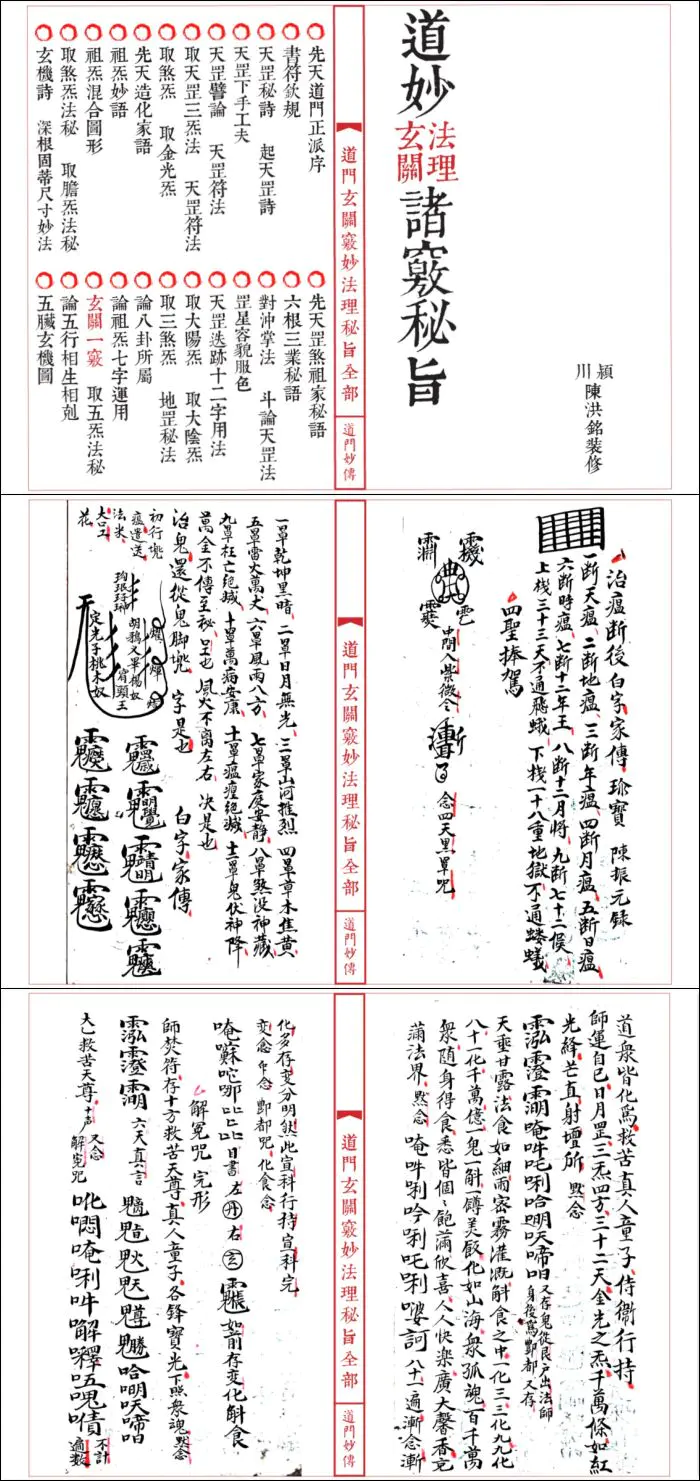 道妙法理玄關諸竅秘旨
潁川陳洪銘裝修
【道門玄關竅妙法理秘旨全部
道門妙傳
先天道門正派序
書符欽規
天罡秘詩 起天罡詩
天罡下手工夫
天罡譬論 天罡符法
取天罡三炁法 天罡符法
取煞炁 取金光炁
先天造化家語
祖炁妙語
祖炁混合圖形
取煞炁法秘 取膽炁法秘
玄機詩 深根固蒂尺寸妙法
先天罡煞祖家秘語
六根三業秘語
對沖掌法 斗論天罡法
罡星容貌服色
天罡迭跡十二字用法
取大陽炁 取大陰炁
取三煞炁 地罡秘法
論八卦所屬
論祖炁七字運用
玄關一竅 取五炁法秘
論五行相生相剋
五臟玄機圖
治瘟断後白字家傳 珍寶 陳振元録
一断天瘟 二断地瘟 三断年瘟 四断月瘟 五断日瘟
六断時瘟 七断十二年王 八断十二月將 九断七十二候
上棧三十三天不通飛蛾 下棧一十八重地獄不通螻蟻
四聖捧駕
中間入紫微令
念四天黑罩咒
【道門玄關竅妙法理秘旨全部
道門妙傳
一罩乾坤黑暗 二罩日月無光 三罩山河推烈 四罩草木焦黄
五罩雷火萬丈 六罩風雨八方 七罩家庭安静 八罩煞没神藏
九罩枉亡绝滅 十罩萬病安康 十一罩瘟瘴绝滅 十二罩鬼伏神降
萬金不傳至秘 呈也 風火不离左右 决是也
治鬼還從鬼脚 字是也 白字家傳
初行
瘟遣送
法米
大口工
花
定光子桃木奴
道衆皆化為救苦真人童子侍衛行持
師運自己日月罡三炁四方三十二天金光之炁千萬條如紅
光絳芒直射壇所 默念
唵吽吒唎哈𠴨天啼咱 又存鬼從艮户出法師身後為酆都又存
天垂甘露法食如細雨密霧灌溉斛食之中一化三三化九九化
八十一化千萬億一鬼一斛一罇美飯化如山海衆孤魂百千萬
衆随身得食悉皆個々飽滿欣喜人人快楽廣大馨香充
滿法界 默念 唵吽唎吟唎吒唎㗑訶 八十一遍漸念漸
【道門玄關竅妙法理秘旨全部
道門妙傳
化多存变分明然此宣科行持宣科完
变念 念酆都咒 化食念
唵囌陀哪 日書左 右 如前存变化斛食
解冤咒 完形
師焚符存十方救苦天尊真人童子各鋒寶光下照衆魂 默念
六天真言
太乙救苦天尊 十声 又念解冤咒 唵唎吽 不計遍数